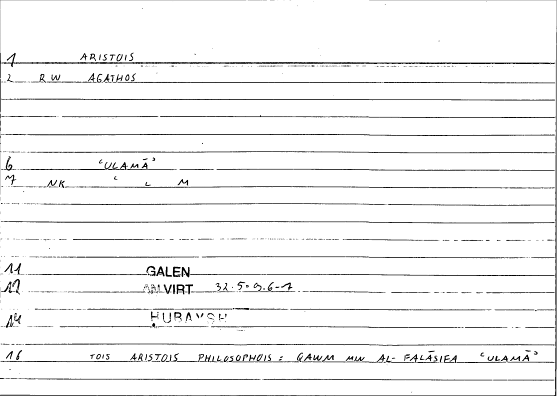 1 ARISTOIS
2 RW AGATHOS
6 ʿULAMĀʾ
7 NK ʿ L M
11 GALEN
12 AN VIRT 32.5.9.6-7
14 ḤUBAYSH
16 TOIS ARISTOIS PHILOSOPHOIS = QAWM MIN AL-FALĀSIFA ʿULAMĀʾ